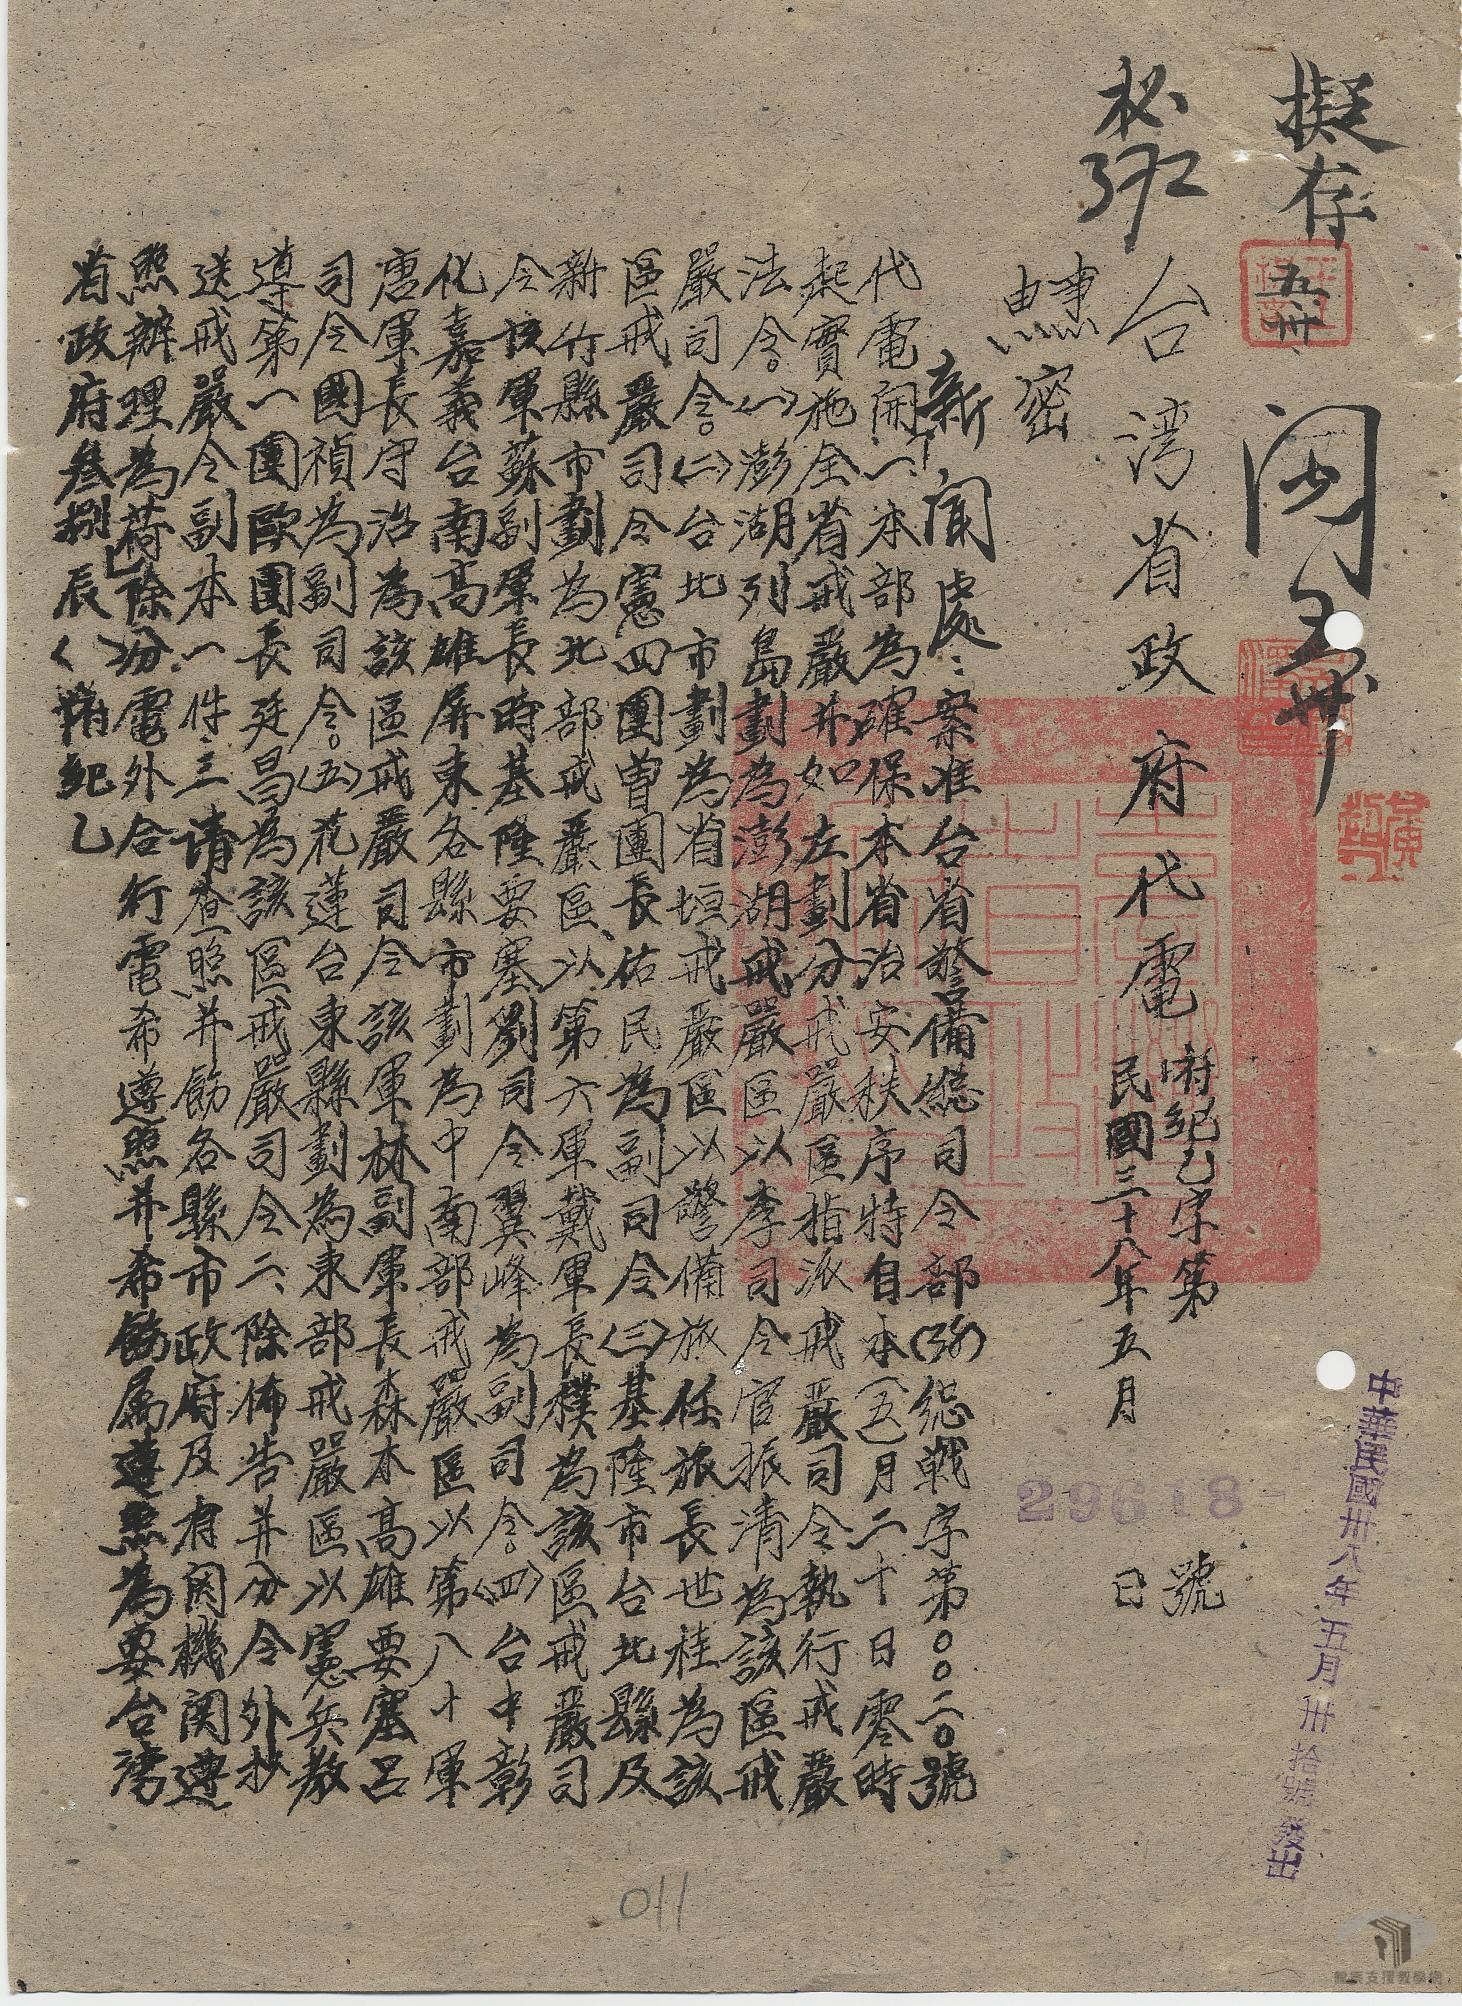 擬存
五卅
閱 五卅
秘
台湾省政府代電
府紀乙字第 號
29618
民國三十八年五月 日
中華民國卅八年五月卅拾號發出
事由
密
新聞處：案准台省警備總司令部(38)總戰字第〇〇二〇號
代電開「一本部為確保本省治安秩序特自本(五)月二十日零時
起實施全省戒嚴并如左劃分戒嚴區指派戒嚴司令執行戒嚴
法令。(一)澎湖列島劃為澎湖戒嚴區以李司令官振清為該區戒
嚴司令。(二)台北市劃為省垣戒嚴區以警備旅任旅長世桂為該
區戒嚴司令憲四團曾團長佑民為副司令(三)基隆市台北縣及
新竹縣市劃為北部戒嚴區、以第六軍戴軍長樸為該區戒嚴司
令該軍蘇副軍長時基隆要塞劉司令翼峰為副司令。(四)台中彰
化嘉義台南高雄屏東各縣市劃為中南部戒嚴區以第八十軍
唐軍長守治為該區戒嚴司令該軍林副軍長森木高雄要塞呂
司令國禎為副司令。(五)花蓮台東縣劃為東部戒嚴區以憲兵教
導第一團歐團長廷昌為該區戒嚴司令二、除佈告并分令外抄
送戒嚴令副本一件三請查照并飭各縣市政府及有関機関遵
照辦理為荷」除分電外合行電希遵照并希飭属遵照為要台湾
省政府叁捌辰( )府紀乙
011
檔案支援教學網